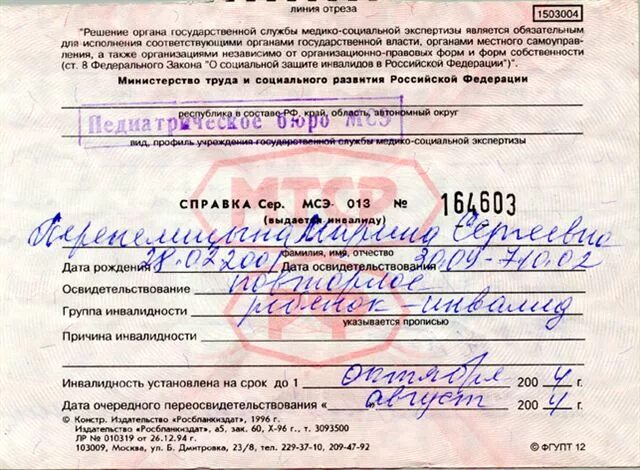 линия отреза
1503004
"Решение органа государственной службы медико-социальной экспертизы является обязательным
для исполнения соответствующими органами государственной власти, органами местного самоуправ-
ления, а также организациями независимо от организационно-правовых форм и форм собственности
(ст. 8 Федерального Закона "О социальной защите инвалидов в Российской Федерации")".
Министерство труда и социального развития Российской Федерации
республика в составе РФ, край, область, автономный округ
Педиатрическое бюро МСЭ
вид, профиль учреждения государственной службы медико-социальной экспертизы
МТСР
СПРАВКА Сер. МСЭ- 013 № 164603
(выдается инвалиду)
Сергеевна
фамилия, имя, отчество
Дата рождения 28.02.2001 Дата освидетельствования
Освидетельствование повторное
Группа инвалидности ребенок-инвалид
указывается прописью
Причина инвалидности
РФ
Инвалидность установлена на срок до 1 октября 200 4 г.
Дата очередного переосвидетельствования « август 200 4 г.
© Констр. Издательство «Росбланкиздат», 1996 г.
Издательство «Росбланкиздат», а5, зак. 60, Х-96 г., т. 3093500
ЛР № 010319 от 26.12.94 г.
103009, Москва, ул. Б. Дмитровка, 23/8, тел. 229-37-10, 209-47-92
© ФГУПТ 12